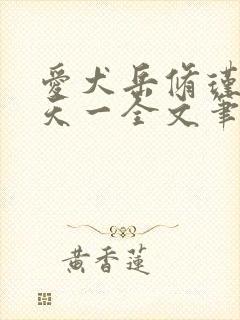 愛犬岳脩瑾
天一全文筆
黃香蓮